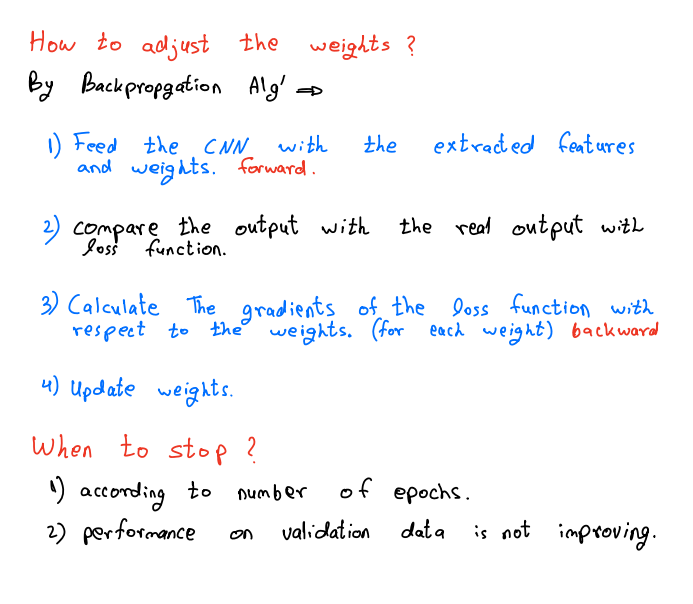 How to adjust the weights ?
By Backpropgation Alg' ⇒
1) Feed the CNN with the extracted features
and weights. forward.
2) compare the output with the real output with
loss function.
3) Calculate The gradients of the loss function with
respect to the weights. (for each weight) backward
4) Update weights.
When to stop ?
1) according to number of epochs.
2) performance on validation data is not improving.